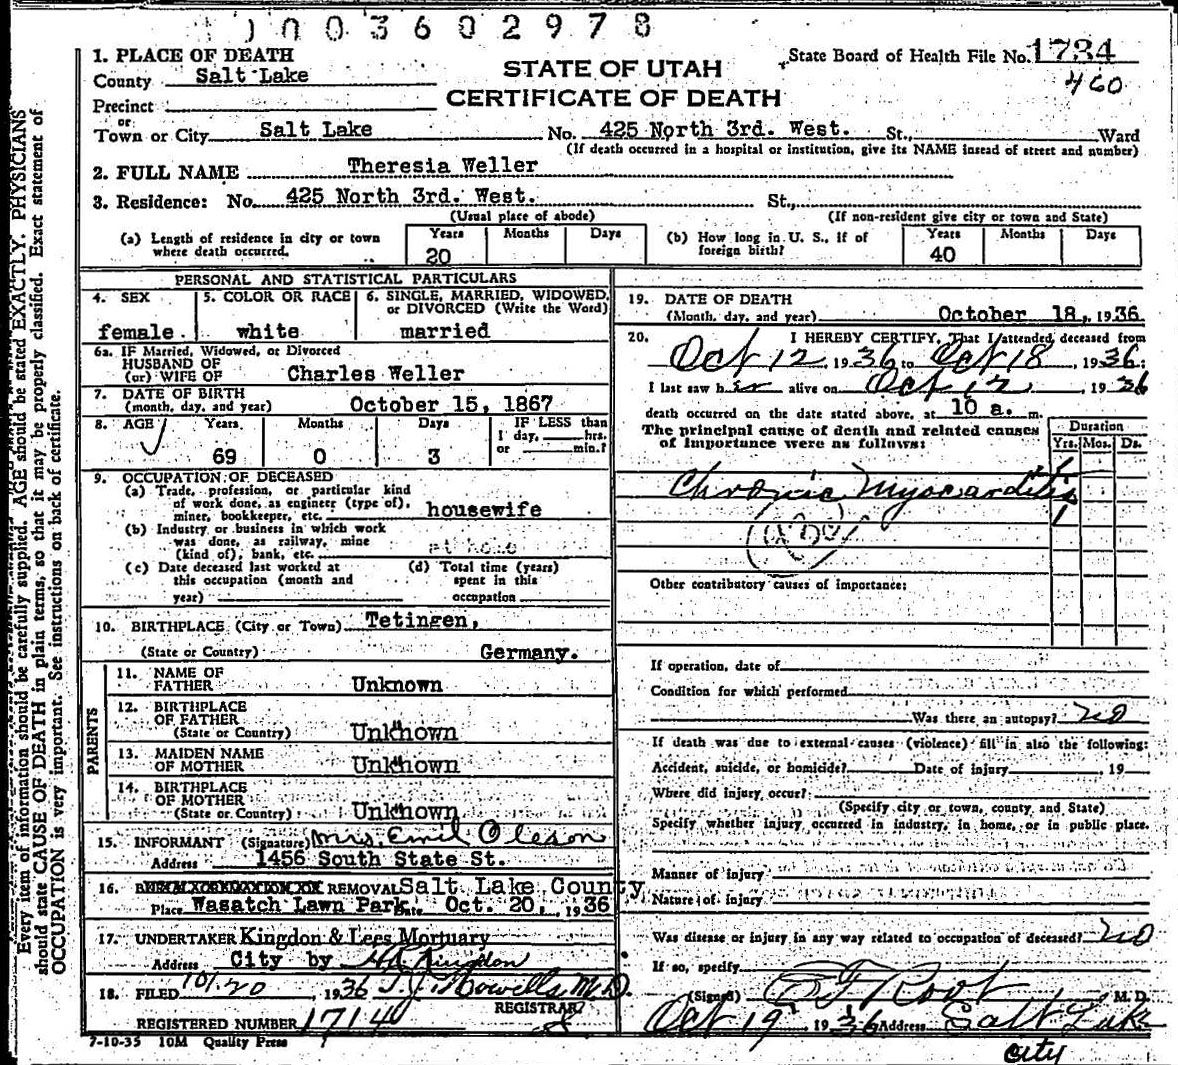 1003602978
1. PLACE OF DEATH
County Salt Lake
Precinct
or
Town or City Salt Lake No. 425 North 3rd. West. St., Ward
(If death occurred in a hospital or institution, give its NAME insead of street and number)
STATE OF UTAH
CERTIFICATE OF DEATH
State Board of Health File No. 1734
460
2. FULL NAME Theresia Weller
3. Residence: No. 425 North 3rd. West. St.,
(Usual place of abode) (If non-resident give city or town and State)
(a) Length of residence in city or town where death occurred. Years 20 Months Days
(b) How long in U. S., if of foreign birth? Years 40 Months Days
PERSONAL AND STATISTICAL PARTICULARS
4. SEX female
5. COLOR OR RACE white
6. SINGLE, MARRIED, WIDOWED, or DIVORCED (Write the Word) married
6a. IF Married, Widowed, or Divorced
HUSBAND OF
(or) WIFE OF Charles Weller
7. DATE OF BIRTH
(month, day, and year) October 15, 1867
8. AGE Years 69 Months 0 Days 3 IF LESS than 1 day, hrs. or min.?
9. OCCUPATION OF DECEASED
(a) Trade, profession, or particular kind
of work done, as engineer (type of),
miner, bookkeeper, etc. housewife
(b) Industry or business in which work
was done, as railway, mine
(kind of), bank, etc. at home
(c) Date deceased last worked at
this occupation (month and
year)
(d) Total time (years)
spent in this
occupation
10. BIRTHPLACE (City or Town) Tetingen,
(State or Country) Germany.
PARENTS
11. NAME OF
FATHER Unknown
12. BIRTHPLACE
OF FATHER
(State or Country) Unknown
13. MAIDEN NAME
OF MOTHER Unknown
14. BIRTHPLACE
OF MOTHER
(State or Country) Unknown
15. INFORMANT (Signature) Mrs. Emil Oleson
Address 1456 South State St.
16. REMOVAL Salt Lake County
Place Wasatch Lawn Park Date Oct. 20, 1936
17. UNDERTAKER Kingdon & Lees Mortuary
Address City by Kingdon
18. FILED 10/20, 1936 T.J. Howells M.D.
REGISTRAR
REGISTERED NUMBER 1714
7-10-35 10M Quality Press
19. DATE OF DEATH
(Month, day, and year) October 18, 1936
20. I HEREBY CERTIFY, That I attended deceased from
Oct 12, 1936 to Oct 18, 1936;
I last saw her alive on Oct 12, 1936
death occurred on the date stated above, at 10 a. m.
The principal cause of death and related causes
of importance were as follows:
Duration
Yrs. Mos. Ds.
Chronic Myocarditis
Other contributory causes of importance:
If operation, date of
Condition for which performed
Was there an autopsy? no
If death was due to external causes (violence) fill in also the following:
Accident, suicide, or homicide? Date of injury, 19
Where did injury occur?
(Specify city or town, county and State)
Specify whether injury occurred in industry, in home, or in public place.
Manner of injury
Nature of injury
Was disease or injury in any way related to occupation of deceased? no
If so, specify
(Signed) Root M. D.
Oct 19, 1936 Address Salt Lake
City
Every item of information should be carefully supplied. AGE should be stated EXACTLY. PHYSICIANS
should state CAUSE OF DEATH in plain terms, so that it may be properly classified. Exact statement of
OCCUPATION is very important. See instructions on back of certificate.